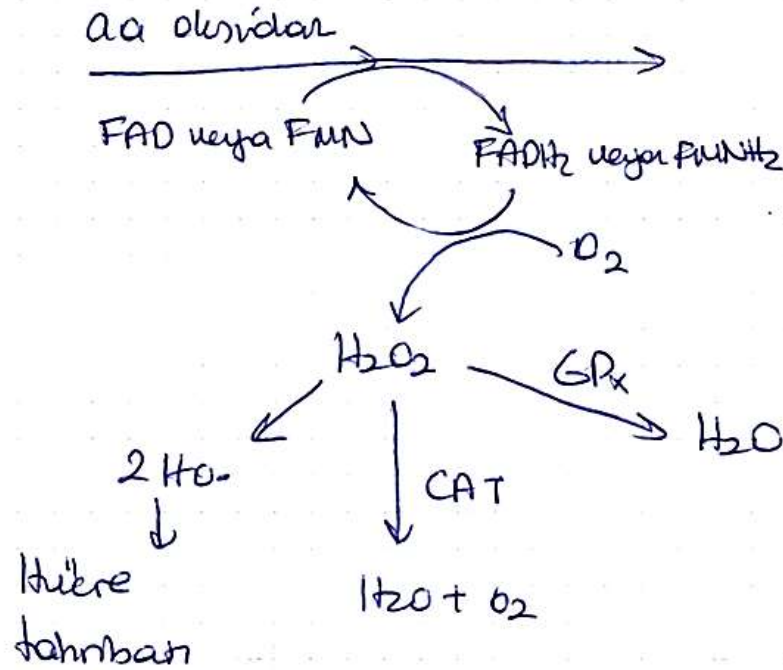 aa oksidaz
FAD veya FMN
FADH2 veya FMNH2
O2
H2O2
GPx
H2O
2 HO•
CAT
Hücre
H2O + O2
tahribatı